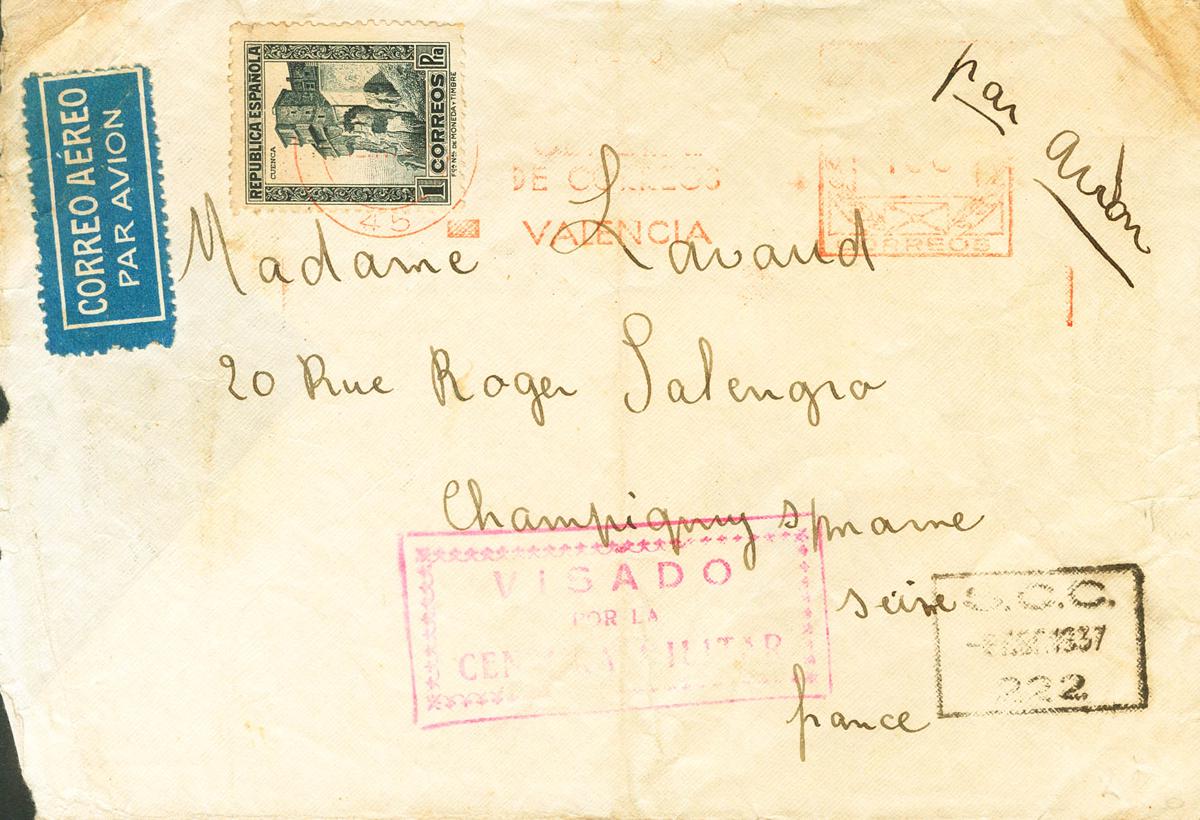 CORREO AÉREO
PAR AVION
REPUBLICA ESPAÑOLA
CUENCA
1 CORREOS Pta
FCA NAL DE MONEDA Y TIMBRE
45
DE CORREOS
VALENCIA
CORREOS
par avion
Madame Lavaud
20 Rue Roger Salengro
Champigny s/marne
seine
france
VISADO
POR LA
CENSURA MILITAR
S.C.C.
1937
222